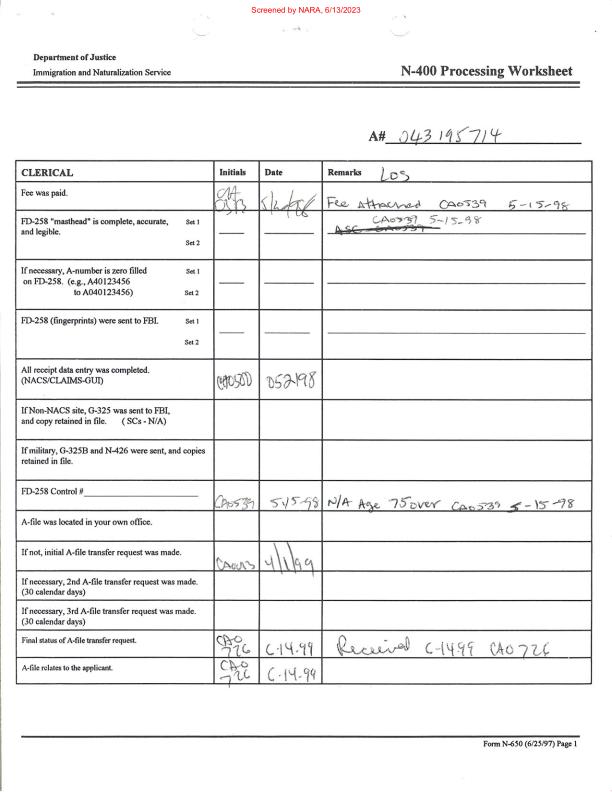 Screened by NARA, 6/13/2023
Department of Justice
Immigration and Naturalization Service
N-400 Processing Worksheet
A# 043195714
CLERICAL Initials Date Remarks LOS
Fee was paid. Fee Attached CA0539 5-15-98
FD-258 "masthead" is complete, accurate, Set 1 CA0539 5-15-98
and legible. ASC CA0539
Set 2
If necessary, A-number is zero filled Set 1
on FD-258. (e.g., A40123456
to A040123456) Set 2
FD-258 (fingerprints) were sent to FBI. Set 1
Set 2
All receipt data entry was completed.
(NACS/CLAIMS-GUI) 052198
If Non-NACS site, G-325 was sent to FBI,
and copy retained in file. ( SCs - N/A)
If military, G-325B and N-426 were sent, and copies
retained in file.
FD-258 Control # CA0539 5-15-98 N/A Age 75 over CA0539 5-15-98
A-file was located in your own office.
If not, initial A-file transfer request was made. 4/1/99
If necessary, 2nd A-file transfer request was made.
(30 calendar days)
If necessary, 3rd A-file transfer request was made.
(30 calendar days)
Final status of A-file transfer request. CAO 726 6-14-99 Received 6-14-99 CAO 726
A-file relates to the applicant. CAO 726 6-14-99
Form N-650 (6/25/97) Page 1